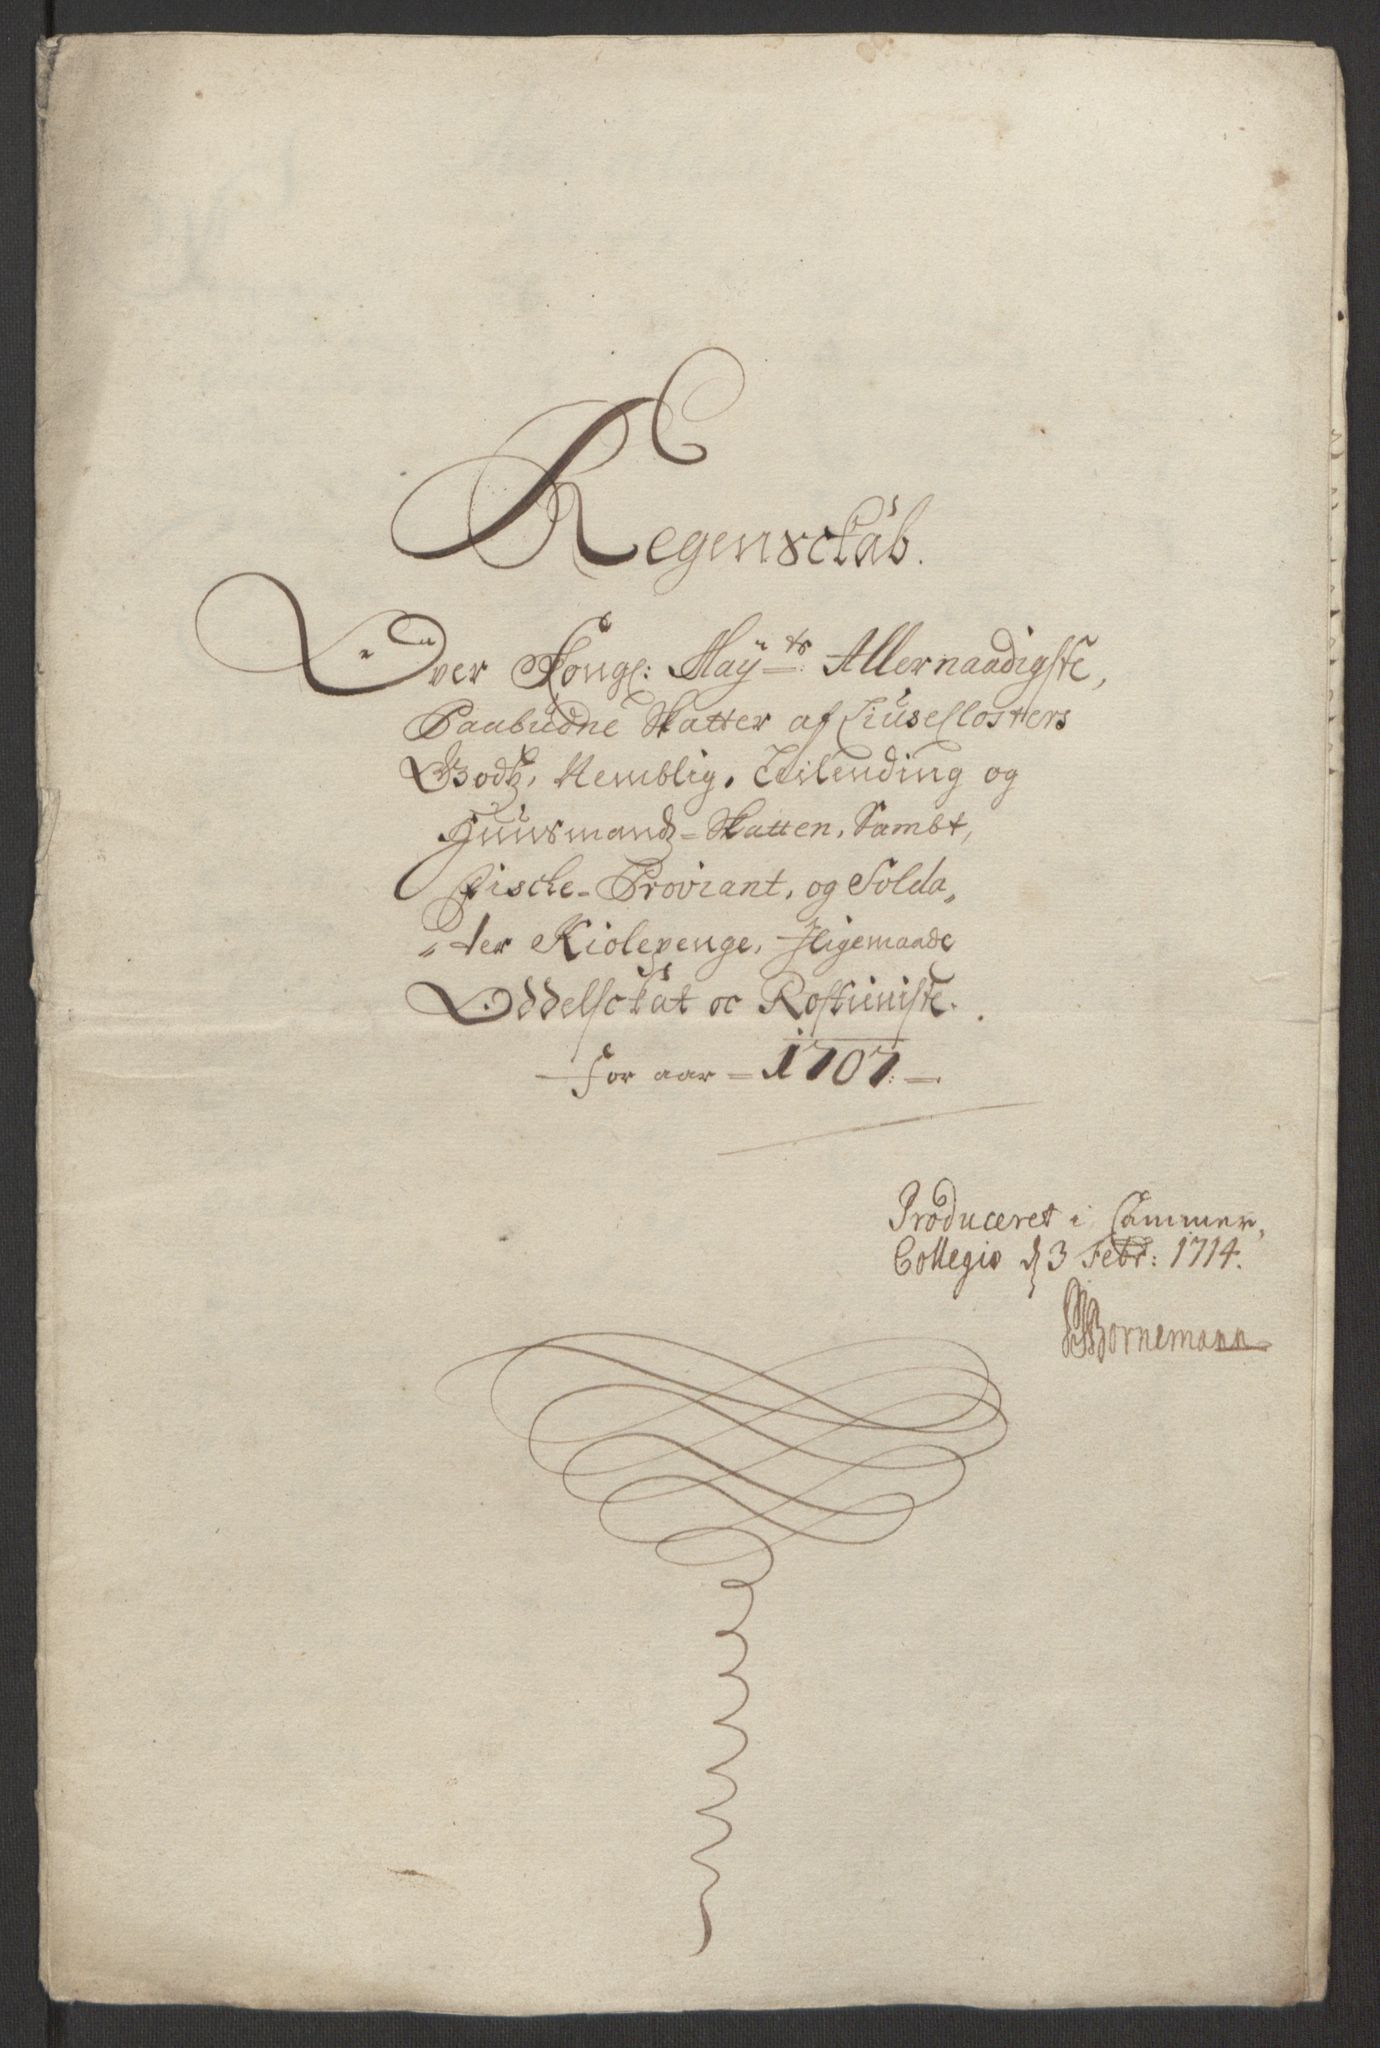 Regenschab.
Over Kongl: May:ts Allernaadigste,
Paabudne Skatter af Liuseclosters
Godtz, Nemblig, Leilending og
Huusmandz-Skatten, Sambt,
Fische-Proviant, og Solda„
„ter Kiolepenge, Iligemaade
Oddelschat oc Rostieniste.
for aar - 1707 -
Produceret i Cammer,
Collegio d 3 Febr: 1714.
Bornemann